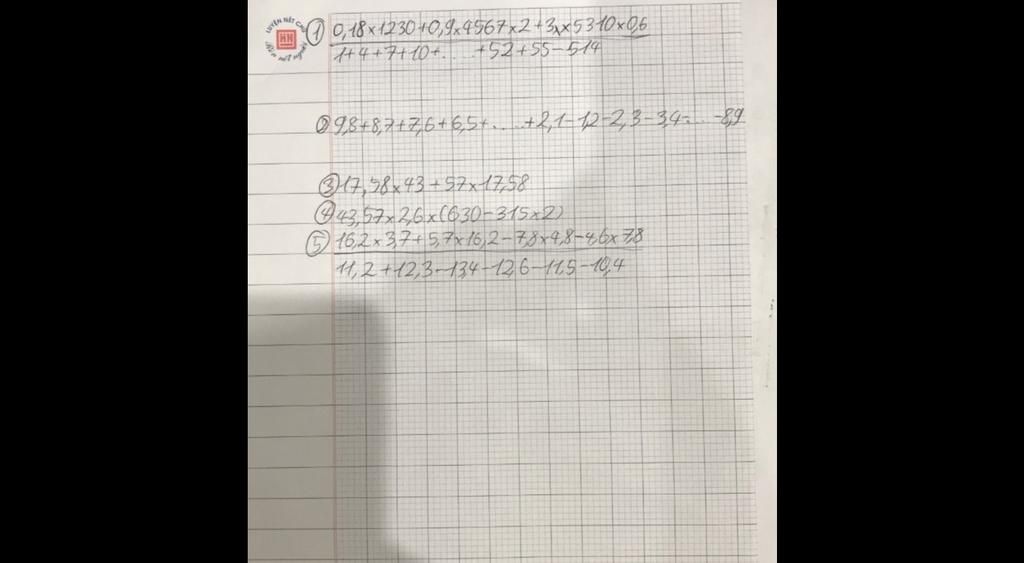 LUYỆN NÉT CHỮ
HN
① 0,18×1230+0,9×4567×2+3××5310×0,6
1+4+7+10+.....+52+55-514
② 9,8+8,7+7,6+6,5+.....+2,1-1,2-2,3-3,4-...-8,9
③ 17,58×43+57×17,58
④ 43,57×2,6×(630-315×2)
⑤ 16,2×3,7+5,7×16,2-7,8×4,8-4,6×7,8
11,2+12,3-13,4-12,6-11,5-10,4